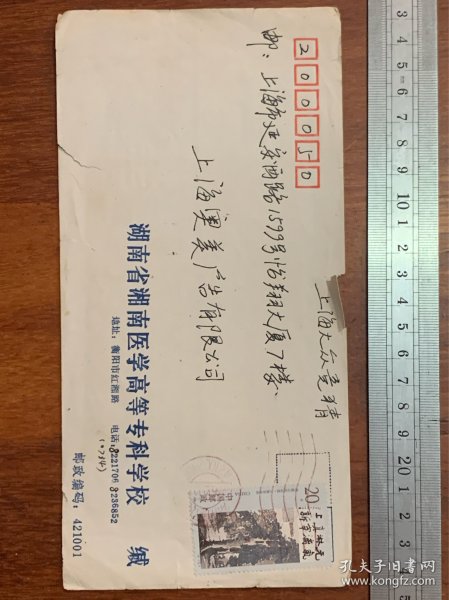 200050
邮：上海市延安西路1599号怡翔大厦7楼、
上海奥美广告有限公司
上海大众竞猜
湖南省湘南医学高等专科学校 缄
地址：衡阳市红湘路 电话：8221706 8236852
(0734)
邮政编码：421001
20分
中国邮政
3 4 5 6 7 8 9 10 1 2 3 4 5 6 7 8 9 20 1 2 3 4
孔夫子旧书网
www.kongfz.com